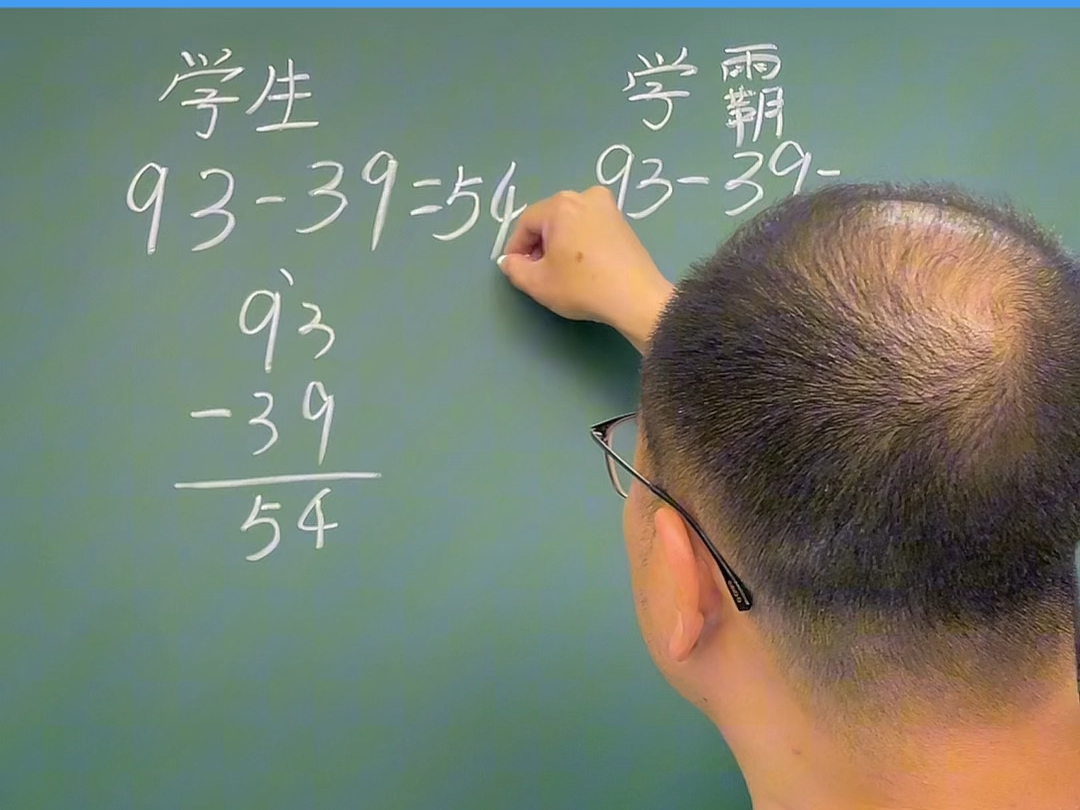 学生
93-39=54
93
-39
54
学霸
93-39-